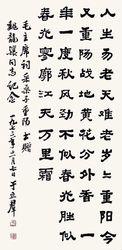 人生易老天难老岁々重阳今
又重阳战地黄花分外香一
年一度秋风劲不似春光胜似
春光寥廓江天万里霜
毛主席词采桑子重阳 书赠
龙骧同志纪念
一九七三年 月七日